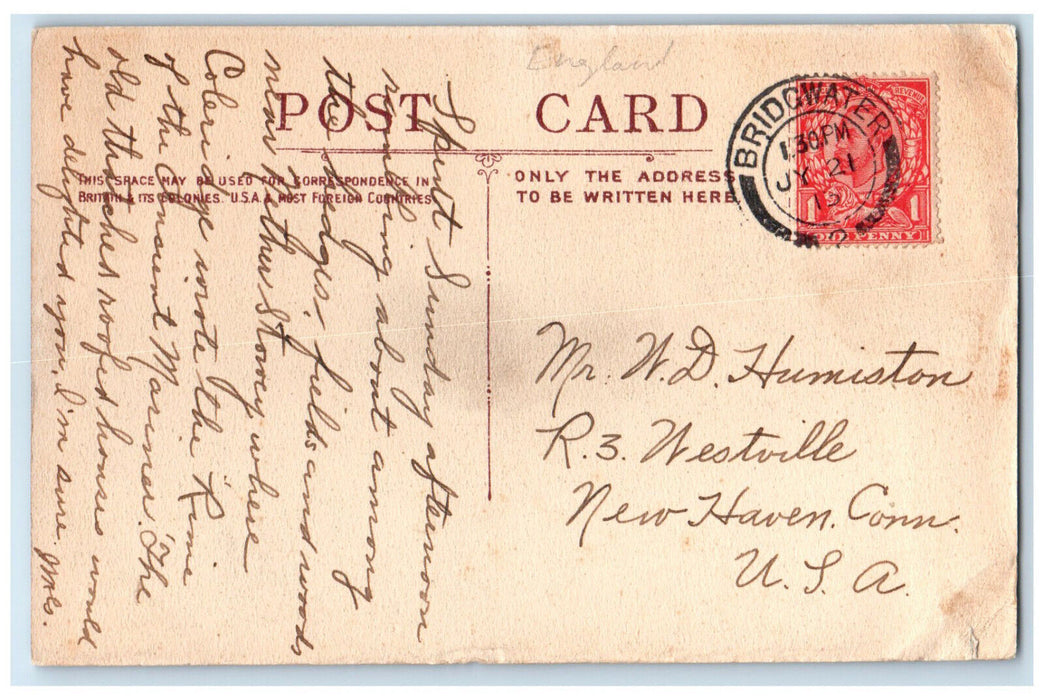 England
POST CARD
THIS SPACE MAY BE USED FOR CORRESPONDENCE IN
BRITAIN & ITS COLONIES, U.S.A. & MOST FOREIGN COUNTRIES.
ONLY THE ADDRESS
TO BE WRITTEN HERE
BRIDGWATER
1.30PM
JY 21
13
REVENUE
1 1
ONE PENNY
Spent Sunday afternoon
rambling about among
the hedges, fields and woods
near Nether Stowey where
Coleridge wrote "the Rime
of the Ancient Mariner." The
old thatched roofed houses would
have delighted you, I'm sure.
Mr. W. D. Humiston
R. 3. Westville
New Haven. Conn.
U. S. A.